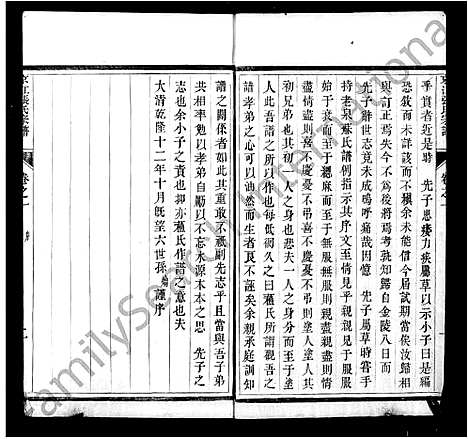 京江張氏宗譜
卷之一
乎貧者近是時 先子患瘧力疾屬草以示小子曰是編
恐敘而未詳該而不穢余未能信今屆試期當俟汝歸相
與訂正焉失今不爲後將焉考孰知歸自金陵八日而
先子辭世志竟未成嗚呼痛哉因憶 先子屬草時嘗手
持老泉蘇氏譜例指示其序文至情見乎親親見于服服
始于衰而至于緦麻而至于無服無服則親盡親盡則情
盡情盡則喜不慶憂不弔喜不慶憂不弔則塗人也塗人
其初兄弟也兄弟其初一人之身也悲夫一人之身分而至于塗人
此吾譜所以作也每低徊久之曰蘇氏所謂觀吾之
譜孝弟之心可以油然而生者良不誣矣余親承庭訓知
譜之關係者如此其重敢不祗嗣先志乎且當與吾子弟
交相率勉以孝弟自勵以不忘水源木本之思 先子之
志也余小子之責也抑亦蘇氏作譜之意也夫
大清乾隆十二年十月既望六世孫 謹序
京江張氏宗譜
卷之一
序
FamilySearch International